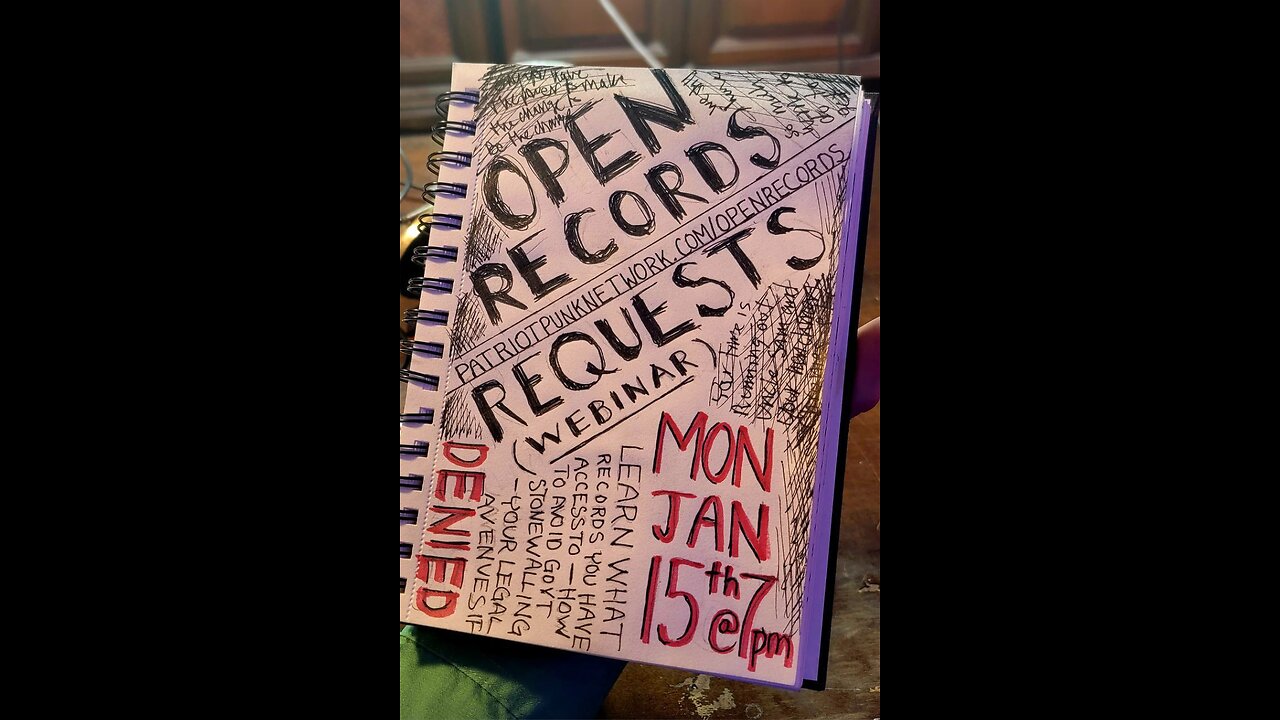 the power to make
the change
be the change
OPEN
RECORDS
PATRIOTPUNKNETWORK.COM/OPENRECORDS
REQUESTS
(WEBINAR)
time is
running out
MON
JAN
15th
@7pm
LEARN WHAT
RECORDS YOU HAVE
ACCESS TO — HOW
TO AVOID GOVT
STONEWALLING
— YOUR LEGAL
AVENVES IF
DENIED